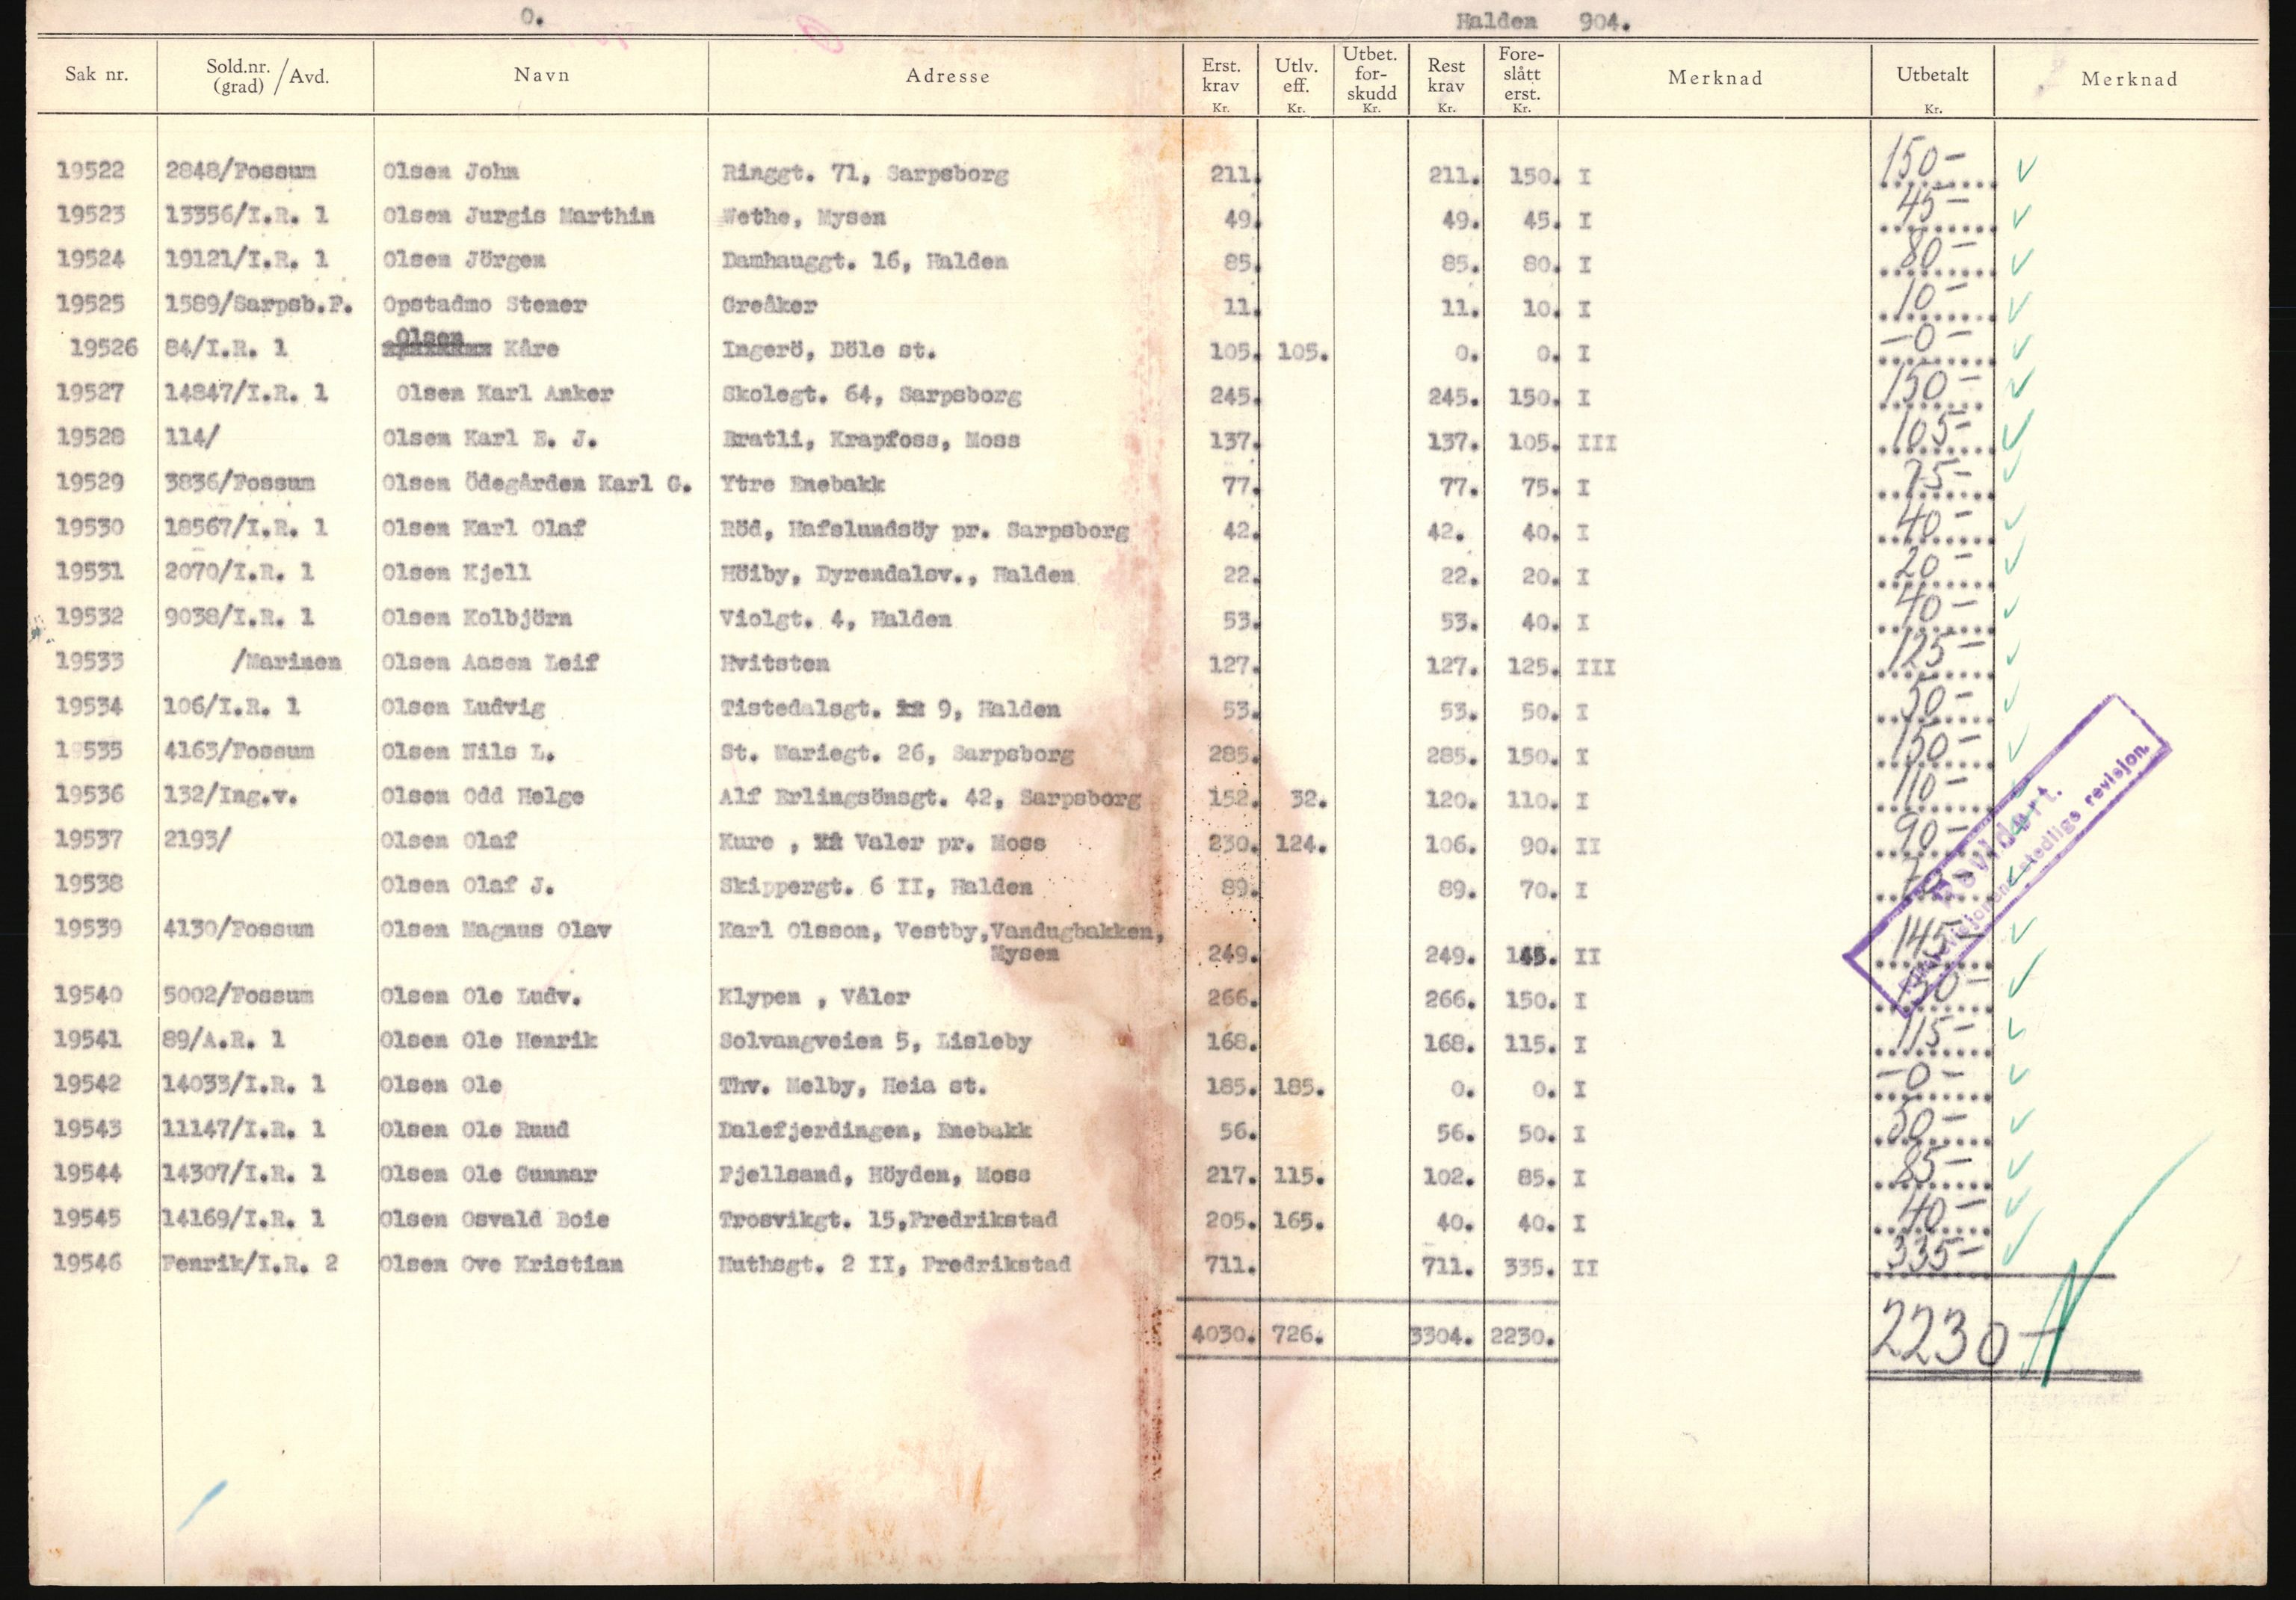 O. Halden 904.
Sak nr. Sold.nr. (grad) / Avd. Navn Adresse Erst. krav Kr. Utlv. eff. Kr. Utbet. for- skudd Kr. Rest krav Kr. Fore- slått erst. Kr. Merknad Utbetalt Kr. Merknad
19522 2848/Fossum Olsen John Ringgt. 71, Sarpsborg 211. 211. 150. I 150-
19523 13356/I.R. 1 Olsen Jurgis Marthin Wethe, Mysen 49. 49. 45. I 45-
19524 19121/I.R. 1 Olsen Jörgen Damhauggt. 16, Halden 85. 85. 80. I 80-
19525 1589/Sarpsb.F. Opstadmo Stener Greåker 11. 11. 10. I 10-
19526 84/I.R. 1 Olsen Kåre Ingerö, Döle st. 105. 105. 0. 0. I -0-
19527 14847/I.R. 1 Olsen Karl Anker Skolegt. 64, Sarpsborg 245. 245. 150. I 150-
19528 114/ Olsen Karl E. J. Bratli, Krapfoss, Moss 137. 137. 105. III 105-
19529 3836/Fossum Olsen Ödegården Karl G. Ytre Enebakk 77. 77. 75. I 75-
19530 18567/I.R. 1 Olsen Karl Olaf Röd, Hafslundsöy pr. Sarpsborg 42. 42. 40. I 40-
19531 2070/I.R. 1 Olsen Kjell Höiby, Dyrendalsv., Halden 22. 22. 20. I 20-
19532 9038/I.R. 1 Olsen Kolbjörn Violgt. 4, Halden 53. 53. 40. I 40-
19533 /Marinen Olsen Aasen Leif Hvitsten 127. 127. 125. III 125-
19534 106/I.R. 1 Olsen Ludvig Tistedalsgt. 9, Halden 53. 53. 50. I 50-
19535 4163/Fossum Olsen Nils L. St. Mariegt. 26, Sarpsborg 285. 285. 150. I 150-
19536 132/Ing.v. Olsen Odd Helge Alf Erlingsönsgt. 42, Sarpsborg 152. 32. 120. 110. I 110-
19537 2193/ Olsen Olaf Kure , Valer pr. Moss 230. 124. 106. 90. II 90-
19538 Olsen Olaf J. Skippergt. 6 II, Halden 89. 89. 70. I
19539 4130/Fossum Olsen Magnus Olav Karl Olsson, Vestby,Vandugbakken,
Mysen 249. 249. 145. II 145-
19540 5002/Fossum Olsen Ole Ludv. Klypen , Våler 266. 266. 150. I 150-
19541 89/A.R. 1 Olsen Ole Henrik Solvangveien 5, Lisleby 168. 168. 115. I 115-
19542 14033/I.R. 1 Olsen Ole Thv. Melby, Heia st. 185. 185. 0. 0. I -0-
19543 11147/I.R. 1 Olsen Ole Ruud Dalefjerdingen, Enebakk 56. 56. 50. I 50-
19544 14307/I.R. 1 Olsen Ole Gunnar Fjellsand, Höyden, Moss 217. 115. 102. 85. I 85-
19545 14169/I.R. 1 Olsen Osvald Boie Trosvikgt. 15,Fredrikstad 205. 165. 40. 40. I 40-
19546 Fenrik/I.R. 2 Olsen Ove Kristian Huthsgt. 2 II, Fredrikstad 711. 711. 335. II 335-
4030. 726. 3304. 2230. 2230-
revisjon.